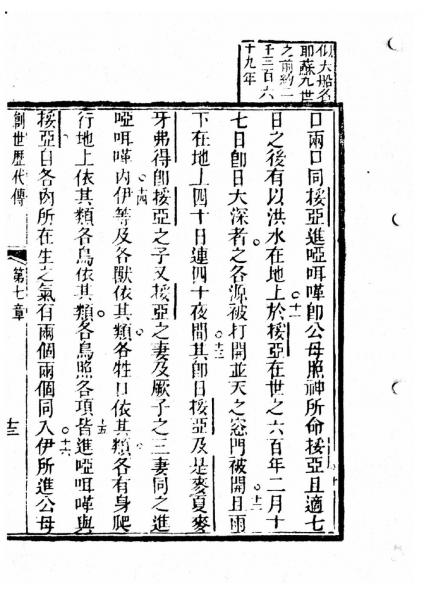 似大船名
耶穌凢世
之前約二
千三百六
十九年
口兩口同挼亞進啞咡嘩卽公母照神所命挼亞且適七
日之後有以洪水在地上於挼亞在世之六百年二月十
七日卽日大深者之各源被打開並天之窓門被開且雨
下在地上四十日連四十夜間其卽日挼亞及是麥夏麥
牙弗得卽挼亞之子又挼亞之妻及厥子之三妻同之進
啞咡嘩內伊等及各獸依其類各牲口依其類各有身爬
行地上依其類各鳥依其類各鳥照各項皆進啞咡嘩與
挼亞自各肉所在生之氣有兩個兩個同入伊所進公母
創世歷代傳 第七章 十三